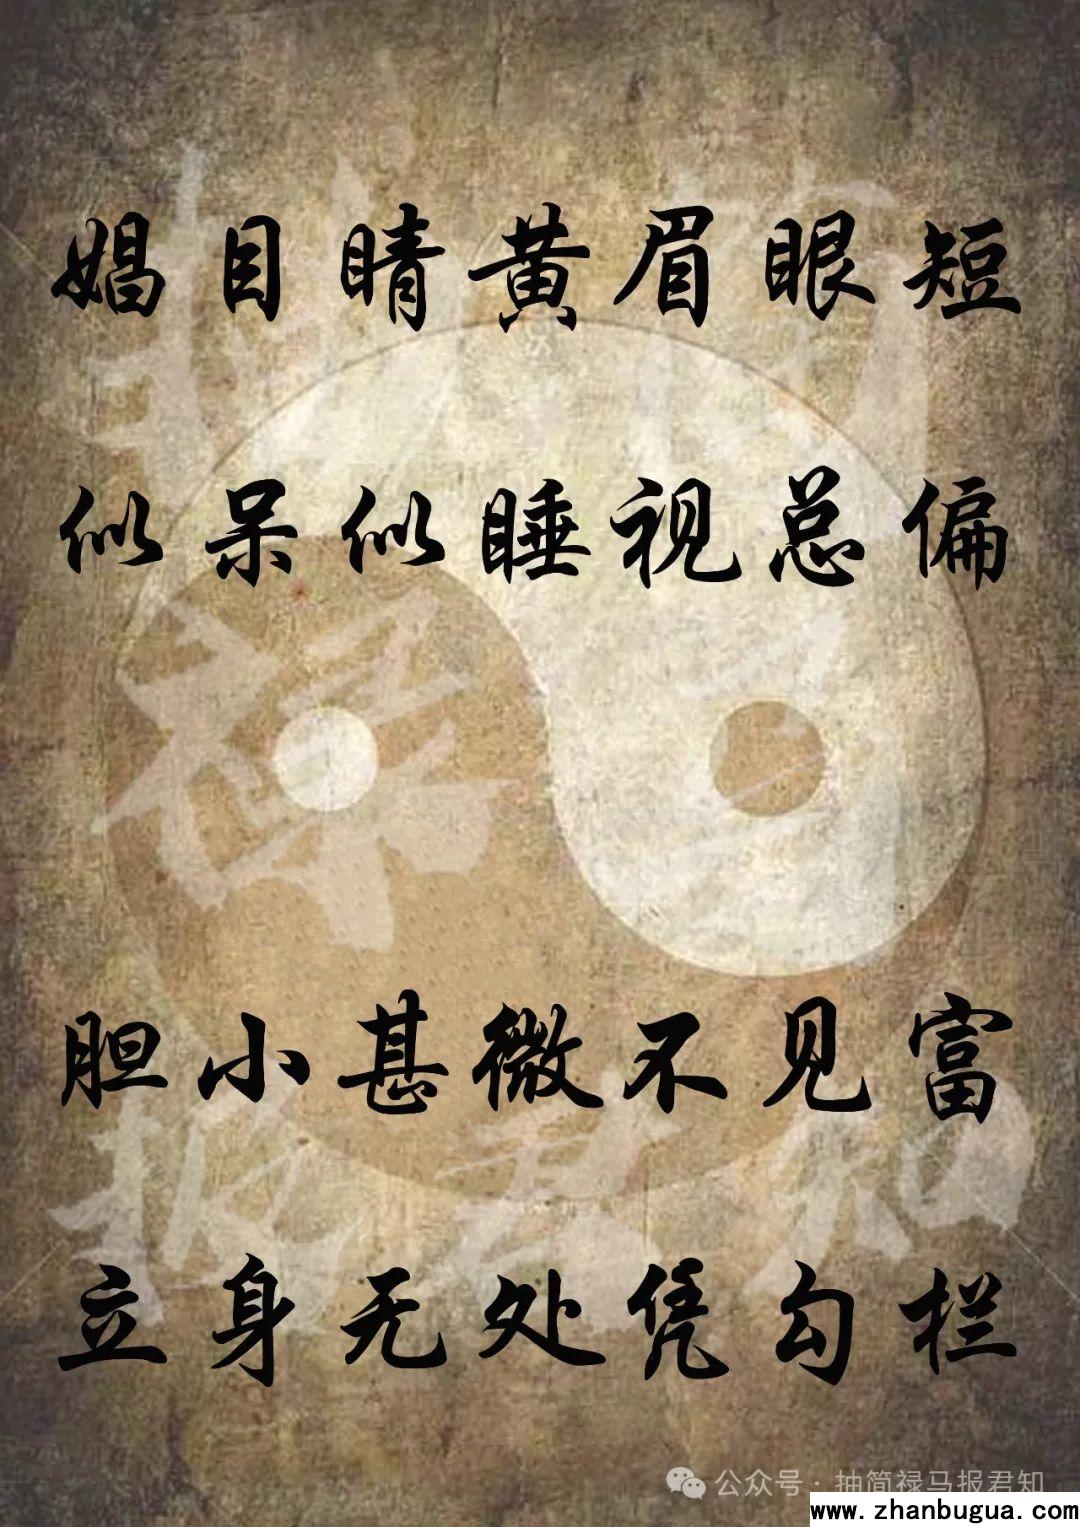 娼目睛黄眉眼短
似呆似睡视总偏
胆小甚微不见富
立身无处凭勾栏
抽简
禄马
报君知
公众号·抽简禄马报君知
www.zhanbugua.com